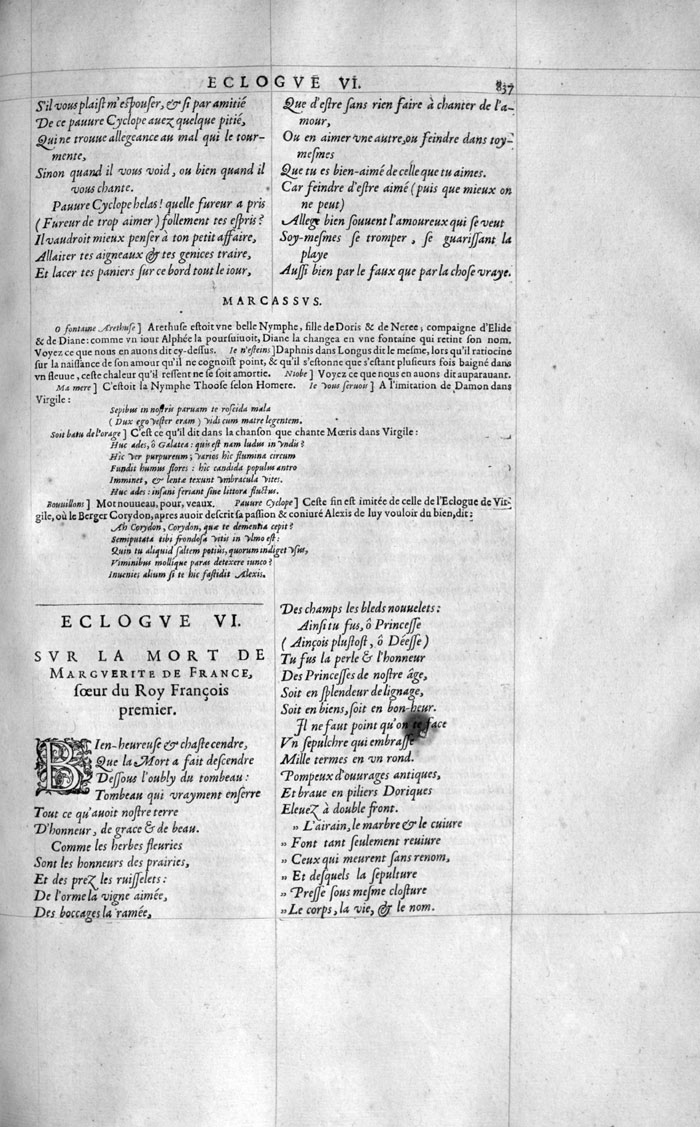 ECLOGVE VI. 837
S'il vous plaiſt m'eſpouſer, & ſi par amitié
De ce pauure Cyclope auez quelque pitié,
Qui ne trouue allegeance au mal qui le tour-
mente,
Sinon quand il vous void, ou bien quand il
vous chante.
Pauure Cyclope helas! quelle fureur a pris
(Fureur de trop aimer) follement tes eſpris?
Il vaudroit mieux penſer à ton petit affaire,
Allaiter tes aigneaux & tes genices traire,
Et lacer tes paniers ſur ce bord tout le iour,
Que d'eſtre ſans rien faire à chanter de l'a-
mour,
Ou en aimer vne autre, ou feindre dans toy-
meſmes
Que tu es bien-aimé de celle que tu aimes.
Car feindre d'eſtre aimé (puis que mieux on
ne peut)
Allege bien ſouuent l'amoureux qui ſe veut
Soy-meſmes ſe tromper, ſe guariſſant la
playe
Auſſi bien par le faux que par la choſe vraye.
MARCASSVS.
O fontaine Arethuſe] Arethuſe eſtoit vne belle Nymphe, fille de Doris & de Neree; compaigne d'Elide
& de Diane: comme vn iour Alphée la pourſuiuoit, Diane la changea en vne fontaine qui retint ſon nom.
Voyez ce que nous en auons dit cy-deſſus. Ie n'eſteins] Daphnis dans Longus dit le meſme, lors qu'il ratiocine
ſur la naiſſance de ſon amour qu'il ne cognoiſt point, & qu'il s'eſtonne que s'eſtant pluſieurs fois baigné dans
vn fleuue, ceſte chaleur qu'il reſſent ne ſe ſoit amortie. Niobe] Voyez ce que nous en auons dit auparauant.
Ma mere] C'eſtoit la Nymphe Thooſe ſelon Homere. Ie vous ſeruois] A l'imitation de Damon dans
Virgile:
Sepibus in noſtris paruam te roſcida mala
(Dux ego veſter eram) vidi cum matre legentem.
Soit batu de l'orage] C'eſt ce qu'il dit dans la chanſon que chante Mœris dans Virgile:
Huc ades, ô Galatea: quis eſt nam ludus in vndis?
Hic ver purpureum; varios hic flumina circum
Fundit humus flores: hic candida populus antro
Imminet, & lentæ texunt vmbracula vites.
Huc ades: inſani feriant ſine littora fluctus.
Bouuillons] Mot nouueau, pour, veaux. Pauure Cyclope] Ceſte fin eſt imitée de celle de l'Eclogue de Vir-
gile, où le Berger Corydon, apres auoir deſcrit ſa paſſion & coniuré Alexis de luy vouloir du bien, dit:
Ah Corydon, Corydon, quæ te dementia cepit?
Semiputata tibi frondoſa vitis in vlmo eſt:
Quin tu aliquid ſaltem potius, quorum indiget vſus,
Viminibus mollique paras detexere iunco?
Inuenies alium ſi te hic faſtidit Alexis.
ECLOGVE VI.
SVR LA MORT DE
MARGVERITE DE FRANCE,
ſœur du Roy François
premier.
BIen-heureuſe & chaſte cendre,
Que la Mort a fait deſcendre
Deſſous l'oubly du tombeau:
Tombeau qui vrayment enſerre
Tout ce qu'auoit noſtre terre
D'honneur, de grace & de beau.
Comme les herbes fleuries
Sont les honneurs des prairies,
Et des prez les ruiſſelets:
De l'orme la vigne aimée,
Des boccages la ramée,
Des champs les bleds nouuelets:
Ainſi tu fus, ô Princeſſe
(Ainçois pluſtoſt, ô Déeſſe)
Tu fus la perle & l'honneur
Des Princeſſes de noſtre âge,
Soit en ſplendeur de lignage,
Soit en biens, ſoit en bon-heur.
Il ne faut point qu'on te face
Vn ſepulchre qui embraſſe
Mille termes en vn rond.
Pompeux d'ouurages antiques,
Et braue en piliers Doriques
Eleuez à double front.
„ L'airain, le marbre & le cuiure
„ Font tant ſeulement reuiure
„ Ceux qui meurent ſans renom,
„ Et deſquels la ſepulture
„ Preſſe ſous meſme cloſture
„ Le corps, la vie, & le nom.